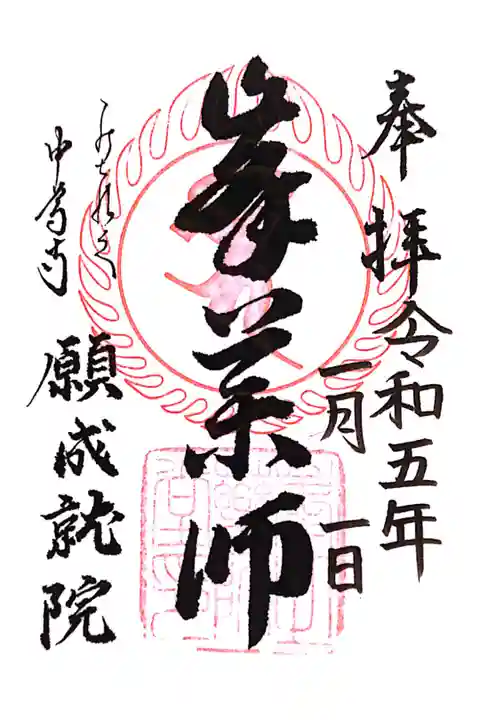 奉拝
令和五年
一月一日
峯薬師
中尊寺
願成就院